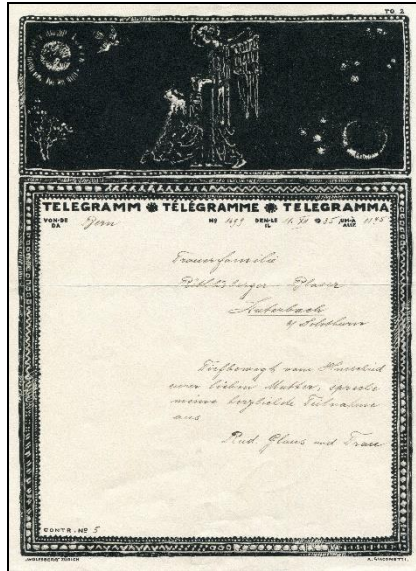 TG. 2
TELEGRAMM ✽ TÉLÉGRAMME ✽ TELEGRAMMA
VON-DE DA Bern Nº 1499 DEN-LE IL 11. XII 35 UM-À ALLE 1145
Trauerfamilie
Glaser
Luterbach
b/ Solothurn
Tiefbewegt vom Hinschied
einer lieben Mutter, spreche
meine herzlichste Teilnahme
aus
Rud. Glaus und Frau
CONTR. Nº 5
J. WOLFENSBERGER ZÜRICH A. GIACOMETTI.